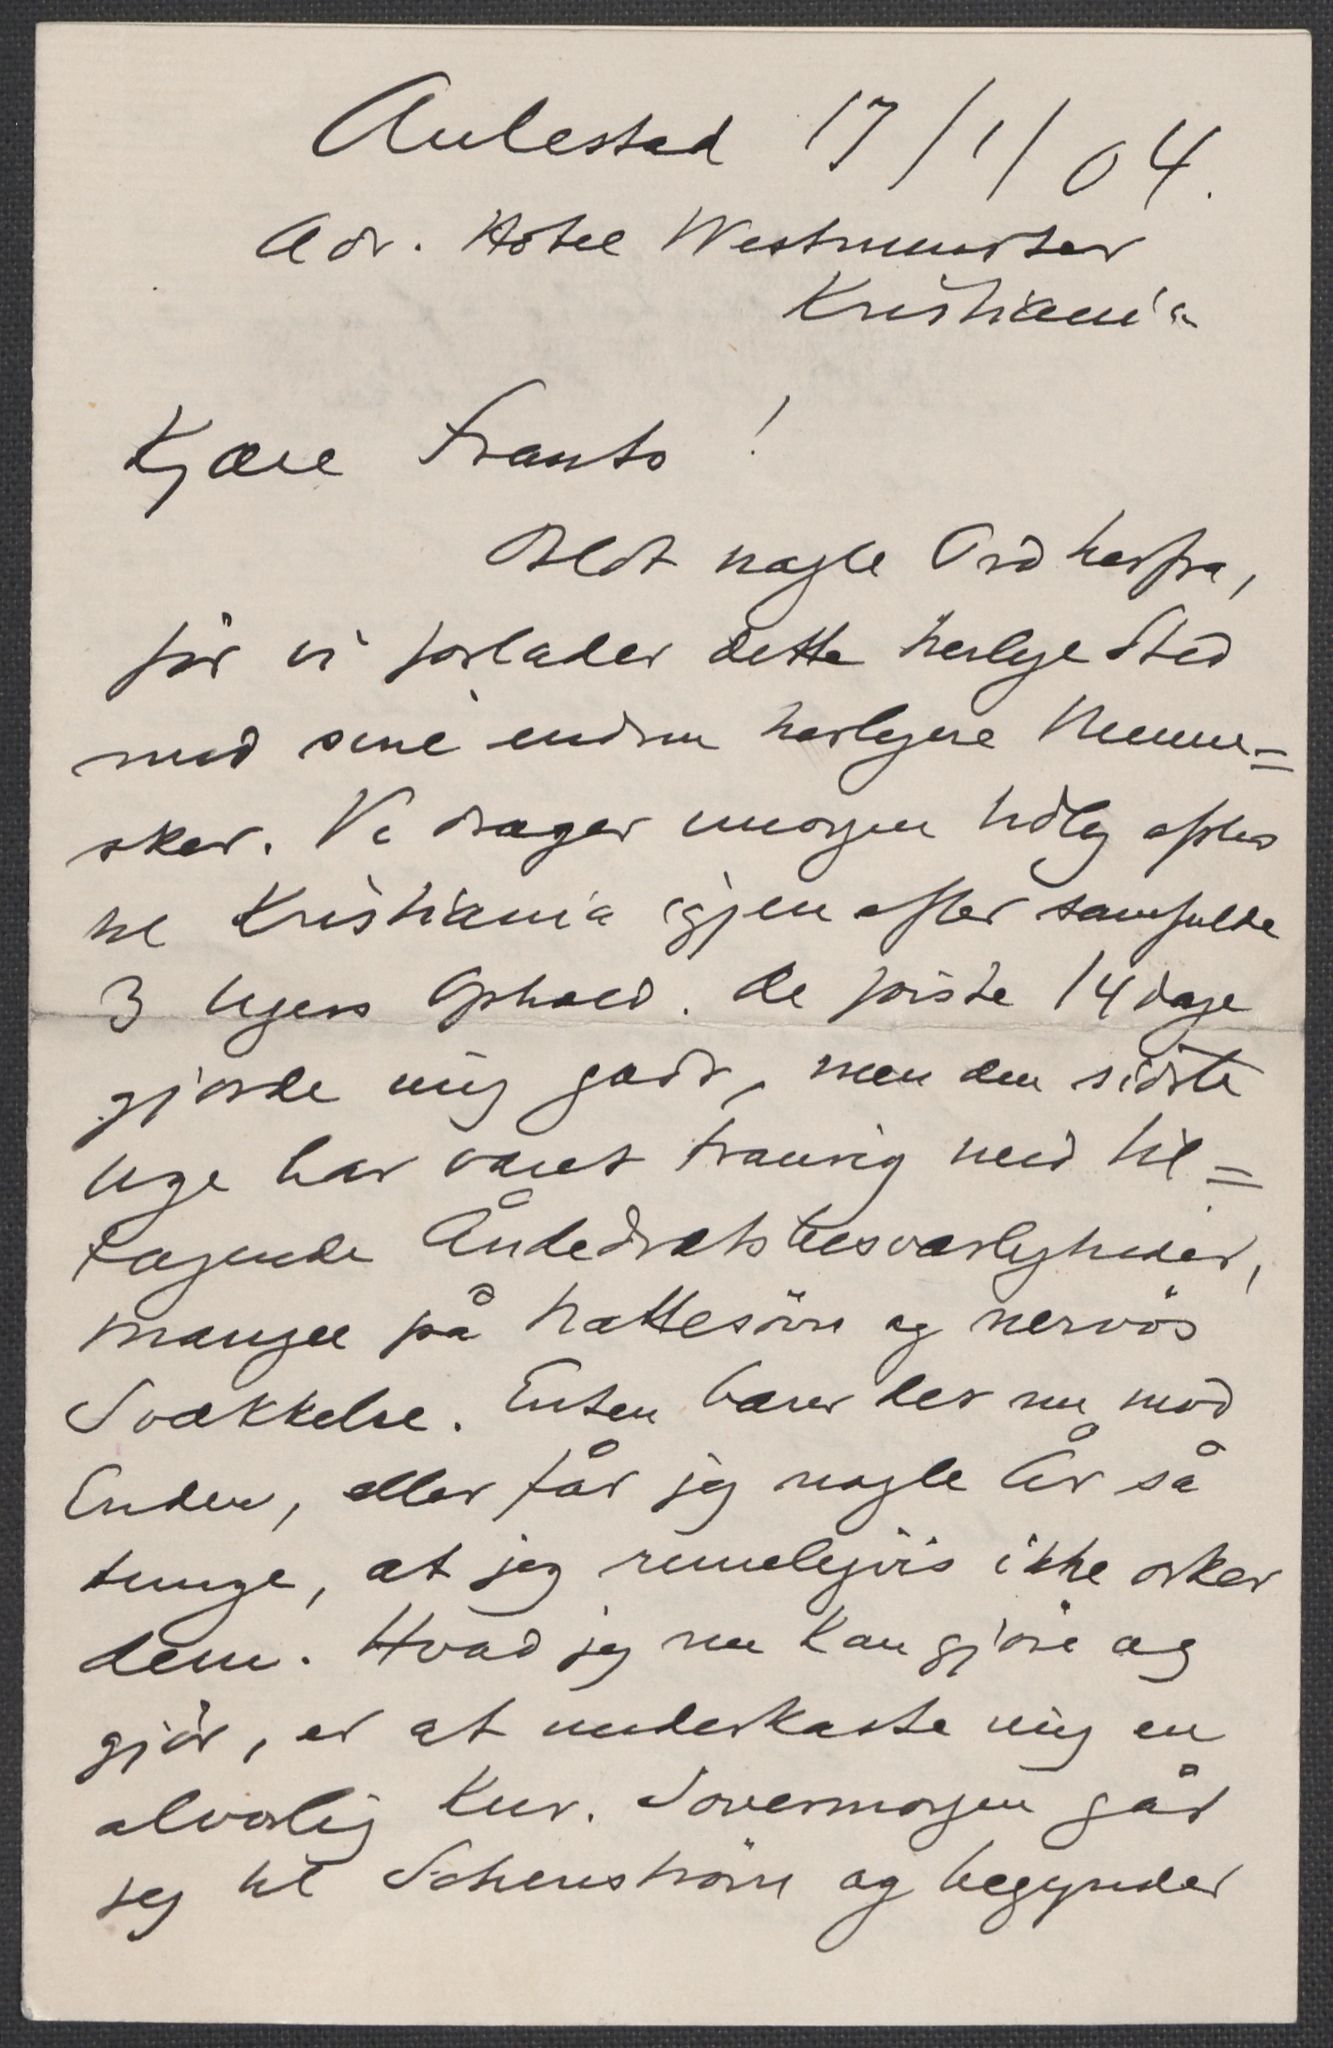 Aulestad 17/1/04.
Adr. Hotel Westminster
Kristiania
Kjære Frants!
Blot nogle Ord herfra,
før vi forlader dette herlige Sted
med sine endnu herligere Menne=
sker. Vi drager imorgen tidlig
til Kristiania igjen efter samfulde
3 Ugers Ophold. De første 14 dage
gjorde mig godt, men den sidste
Uge har været traurig med til=
tagende Åndedrætsbesværligheder,
mangel på Nattesøvn og nervøs
Svækkelse. Enten bærer det nu mod
Enden, eller får jeg nogle År så
tunge, at jeg rimeligvis ikke orker
dem. Hvad jeg nu kan gjøre og
gjør, er at underkaste mig en
alvorlig Kur. Iovermorgen går
jeg til Schenström og begynder